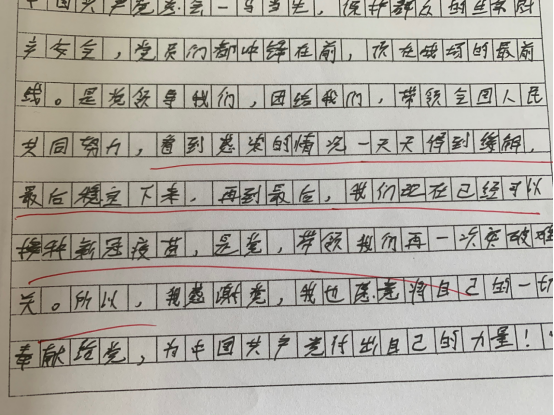 中国共产党总会一马当先，保护群众的生命财
产安全，党员们都冲锋在前，顶在战场的最前
线。是党领导我们，团结我们，带领全国人民
共同努力，看到感染的情况一天天得到缓解，
最后稳定下来，再到最后，我们现在已经可以
接种新冠疫苗，是党，带领我们再一次突破难
关。所以，我感谢党，我也愿意将自己的一切
奉献给党，为中国共产党付出自己的力量！